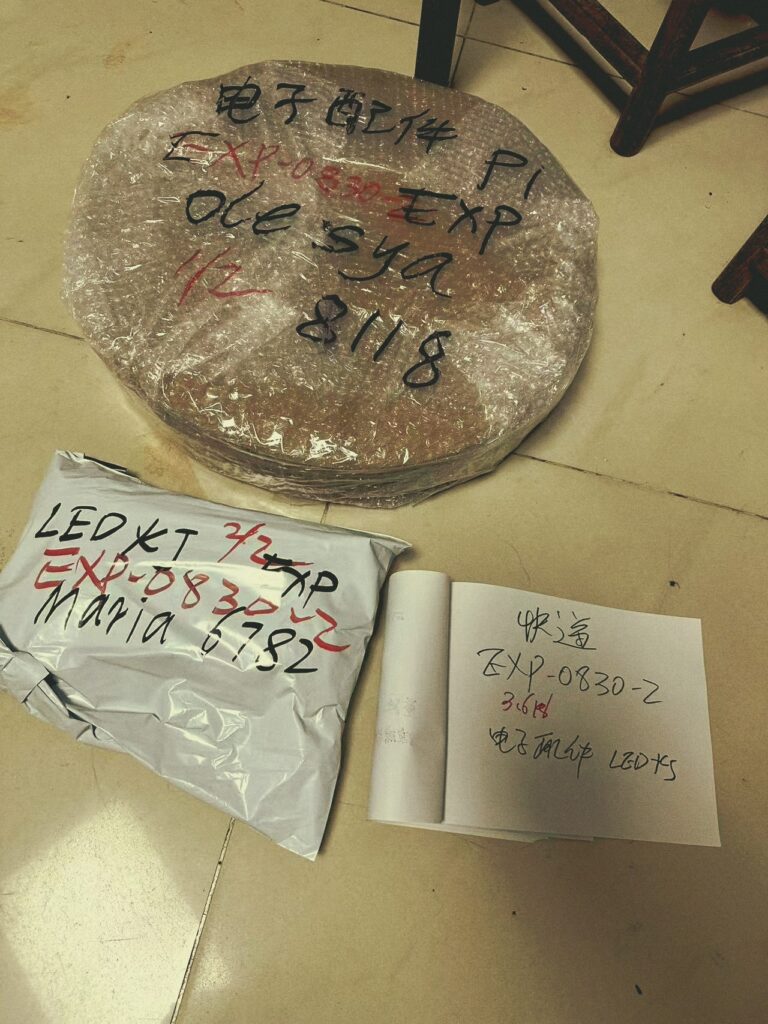 电子配件 P1
EXP-0830-2 EXP
Olesya
1/2
8118
LED 灯 2/2 EXP
EXP-0830-2
Maria 6782
快递
EXP-0830-2
电子配件 LED灯